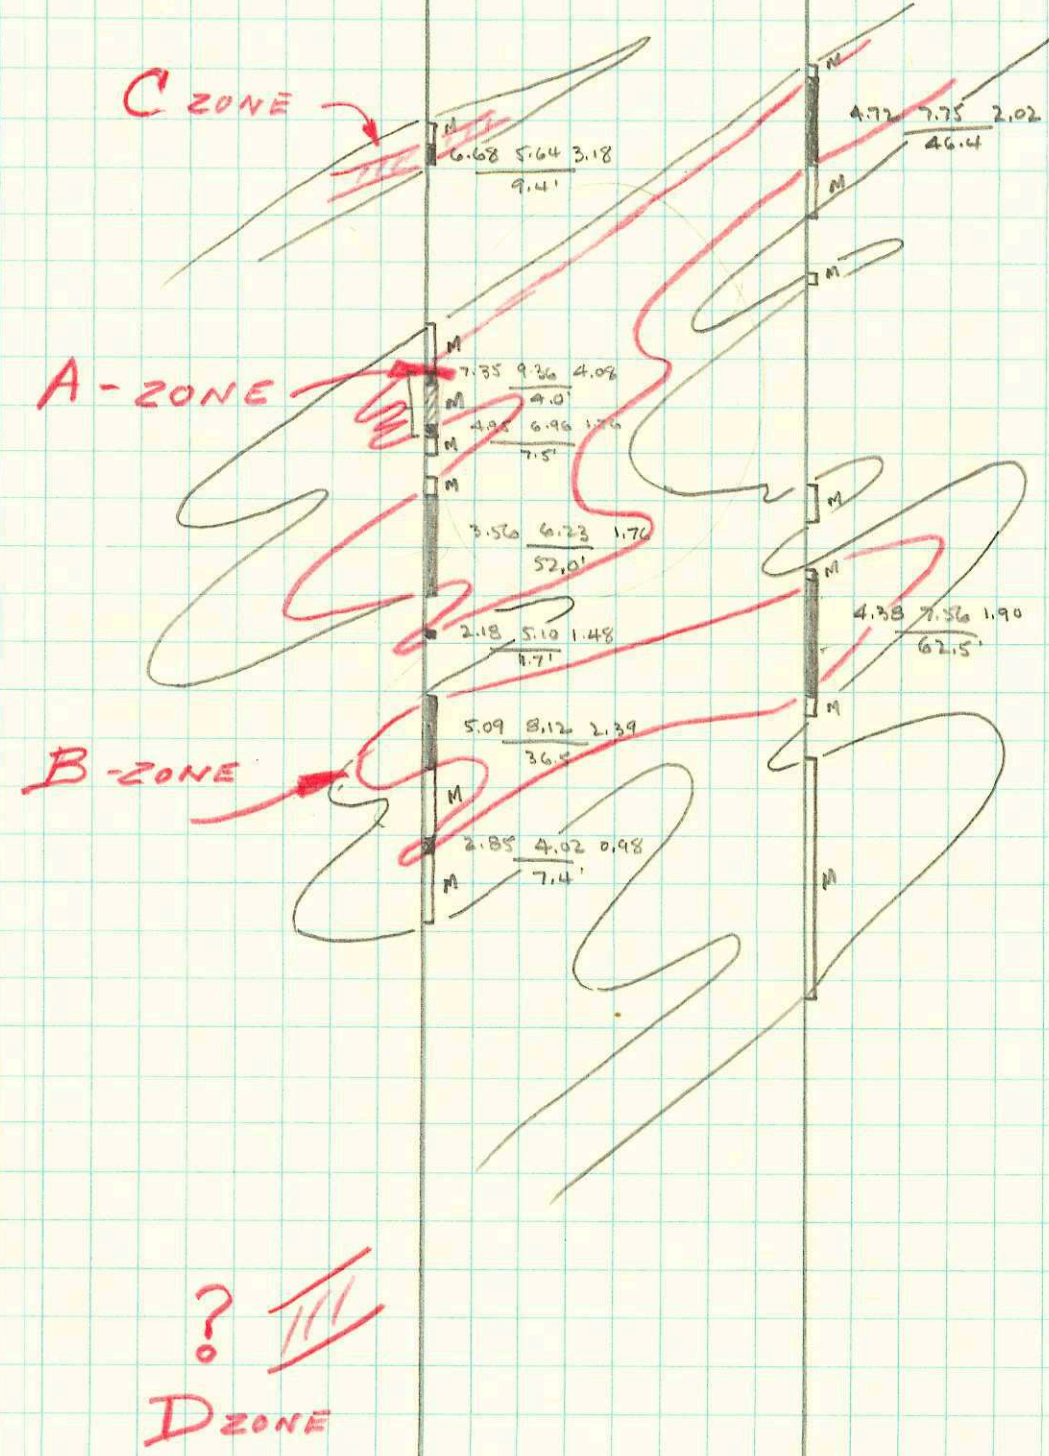 C ZONE
M
6.68 5.64 3.18
9.4'
M
4.72 7.75 2.02
46.4
M
M
A-ZONE
M
7.35 9.36 4.08
4.0'
M
4.95 6.96
7.5'
M
M
3.56 6.23 1.76
52.0'
M
M
2.18 5.10 1.48
4.38 7.56 1.90
62.5'
M
B-ZONE
5.09 8.12 2.39
36.5
M
2.85 4.02 0.98
7.4'
M
M
?
D ZONE